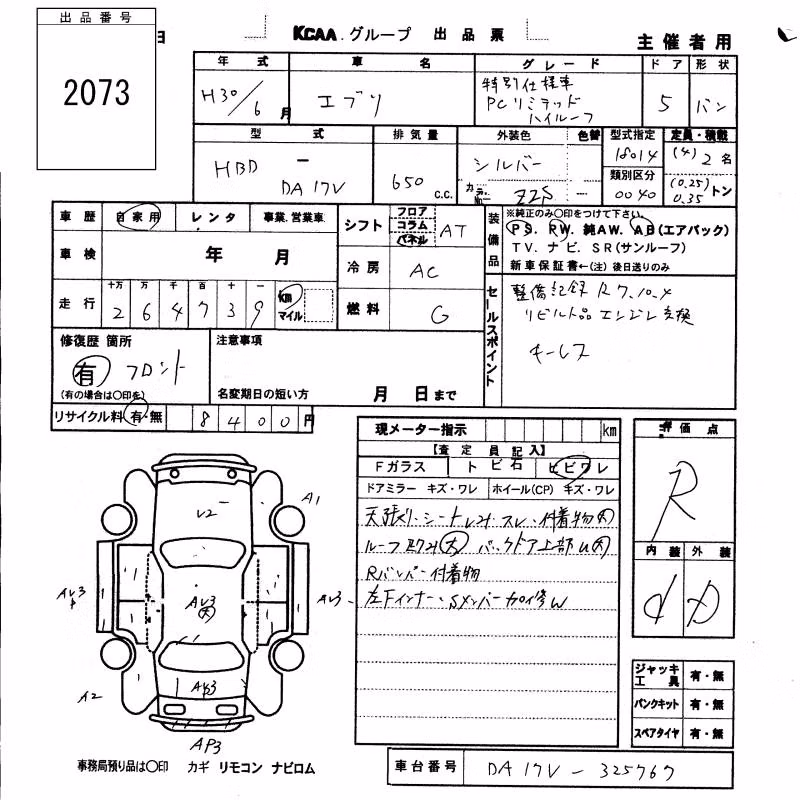 出品番号
2073
日
KCAA グループ 出品票
主催者用
年式 車名 グレード ドア 形状
H30/6月 エブリ 特別仕様車 5 バン
PCリミテッド
ハイルーフ
型式 排気量 外装色 色替 型式指定 定員・積載
HBD - 650 c.c. シルバー 18014 (4) 2名
DA17V カラーNo. Z2S - 類別区分 (0.25) トン
0040 0.35
車歴 自家用 レンタ 事業.営業車
車検 年 月
走行 十万 万 千 百 十 一 km
2 6 4 7 3 9 マイル
シフト フロア コラム パネル AT
冷房 AC
燃料 G
装備品
※純正のみ○印をつけて下さい。
PS. RW. 純AW. AB(エアバック)
TV. ナビ. SR(サンルーフ)
新車保証書←(注)後日送りのみ
セールスポイント
整備記録 R7.10.4
リビルト品 エンジン交換
キーレス
修復歴 箇所
有 フロント
(有の場合は○印を)
注意事項
名変期日の短い方 月 日まで
リサイクル料 有・無 8400円
現メーター指示 km
【査定員記入】
Fガラス トビ石 ヒビワレ
ドアミラー キズ・ワレ ホイール(CP) キズ・ワレ
天張り、シート ヨゴレ・スレ・付着物大
ルーフ凹ヘコミ大 バックドア上部U大
Rバンパー付着物
左Fインナー、Sメンバー加修W
評価点
R
内装 外装
d D
ジャッキ工具 有・無
パンクキット 有・無
スペアタイヤ 有・無
V2
A1
AV3
AV3大
AV3
A2
AP3
AP3
事務局預り品は○印 カギ リモコン ナビロム
車台番号 DA17V - 325767